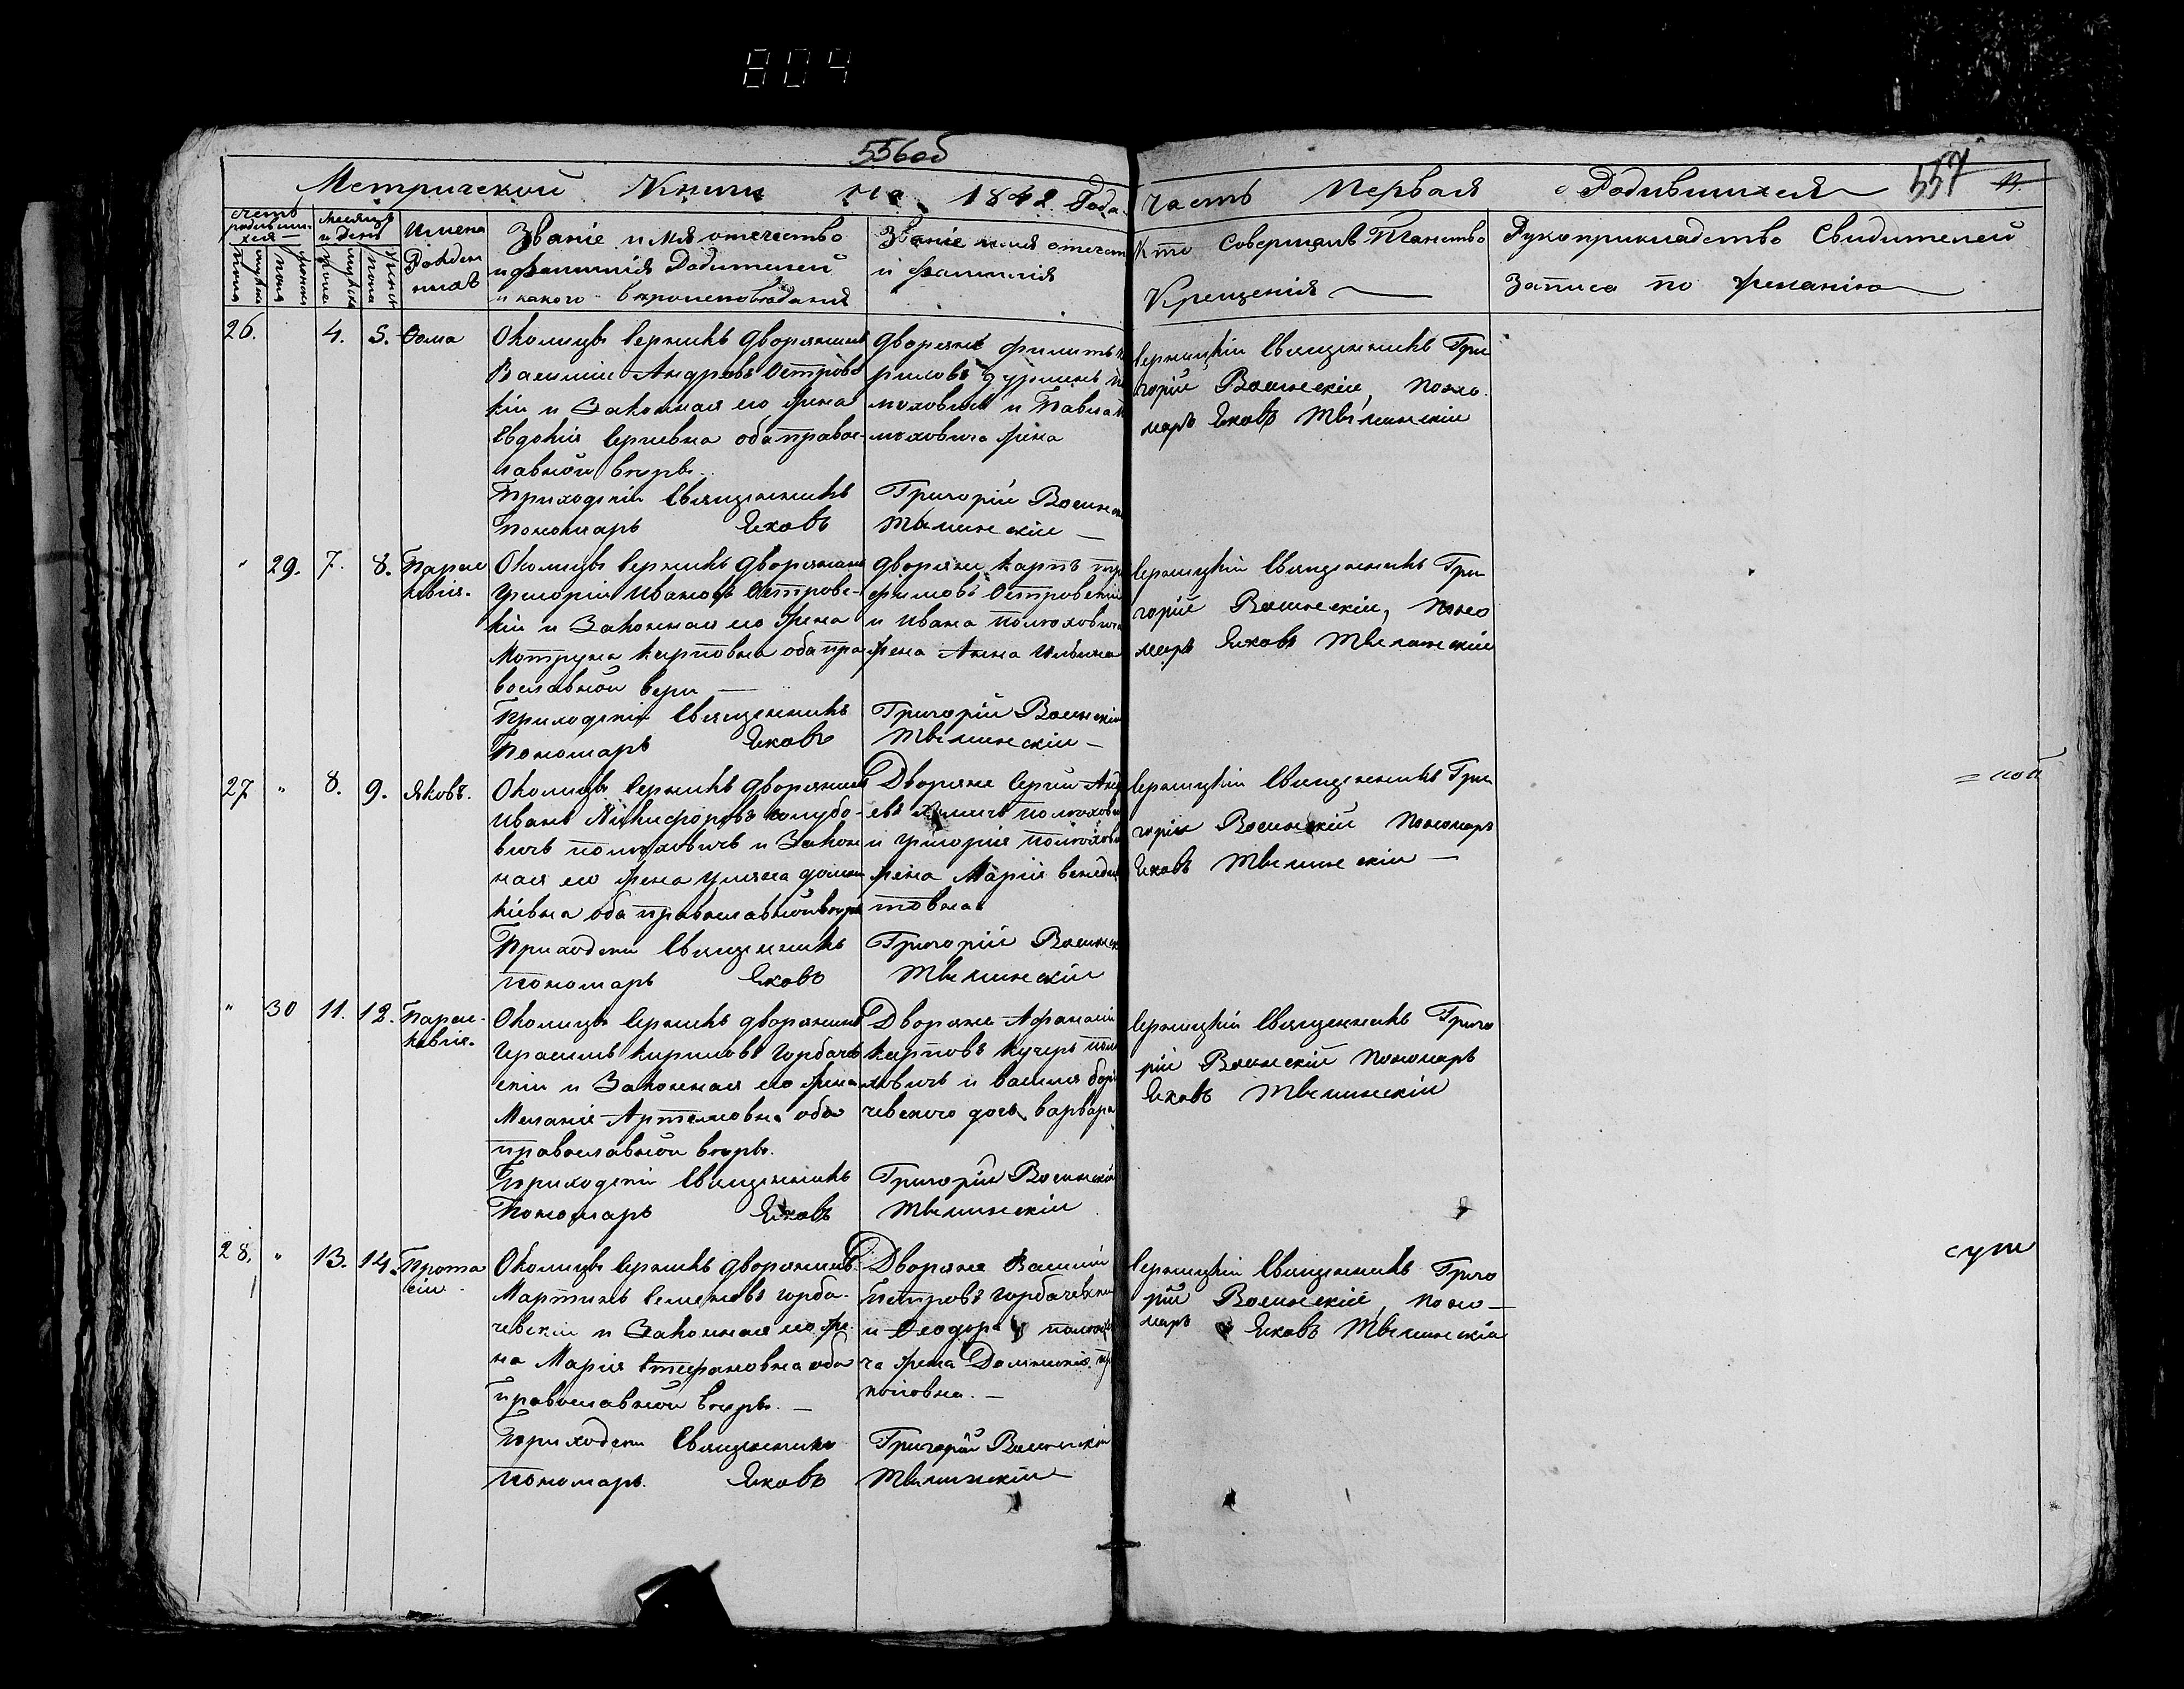 804
556об
Метрической Книги На 1842 Года.
часть Первая о Родившихся 557
Счетъ родивших ся
Месяцъ и День
Имена Рожден ныхъ
Званіе имя отечество
и фамилія Родителей
и какого вероисповеданія
Званіе имя отечест
и фамилія
Кто Совершалъ Таинство
Крещенія
Рукоприкладство Свидетелей
Записа по желанію
26. 4. 5. Фома
Околицы Серникъ дворянинъ
Василій Андреевъ Островс
кій и Законная его жена
Евдокія Сергиевна оба правос-
лавной веры.
Приходскій Священникъ
Пономарь Яковъ
дворяне Филипъ
риловъ
моховичъ и Павла
моховича жена
Григорій Волинск
Твилинскій
Серницкій Священникъ Гри
горій Волинскій, поно
марь Яковъ Твилинскій
" 29. 7. 8. Парас
кевія.
Околицы Серникъ дворянинъ
Григорій Ивановъ Островс-
кій и Законная его жена
Мотруна Карповна оба пра
вославной веры
Приходскій Священникъ
Пономарь Яковъ
дворяне Карпъ
филовъ Островскій
и Ивана Полюховича
жена Анна Ильина
Григорій Волинскій
Твилинскій
Серницкій Священникъ Гри
горій Волинскій, поно
марь Яковъ Твилинскій
27 " 8. 9. Яковъ.
Околицы Серникъ дворянинъ
Иванъ Никифоровъ голубо-
вичъ Полюховичъ и Закон
ная его жена Уляна
кіевна оба православной веры
Приходскій Священникъ
Пономарь Яковъ
Дворяне Сергій Анд
евъ Полюхови
и Григорія Полюхови
жена Марія Венедик
товна
Григорій Волинск
Твилинскій
Серницкій Священникъ Гри
горій Волинскій Пономарь
Яковъ Твилинскій
" 30 11. 12. Парас-
кевія.
Околицы Серникъ дворянинъ
Герасимъ Кириловъ Горбачев
скій и Законная его жена
Меланія Артемовна оба
православной веры.
Приходскій Священникъ
Пономарь Яковъ
Дворяне Афанасій
Карповъ Кучеръ Полю
ховичъ и Василія Горб
чевского дочь Варвара
Григорій Волинскій
Твилинскій
Серницкій Священникъ Григо
рій Волинскій Пономарь
Яковъ Твилинскій
28. " 13. 14. Прота
сій
Околицы Серникъ дворянинъ
Мартинъ Семеновъ Горба-
чевскій и Законная его же
на Марія Стефановна оба
православной веры.
Приходскій Священникъ
Пономарь Яковъ
Дворяне Василій
Петровъ Горбачевскій
и Феодора Полюхови
ча жена Домникія
коповна.
Григорій Волинскій
Твилинскій
Серницкій Священникъ Григо
рій Волинскій, поно
марь Яковъ Твилинскій